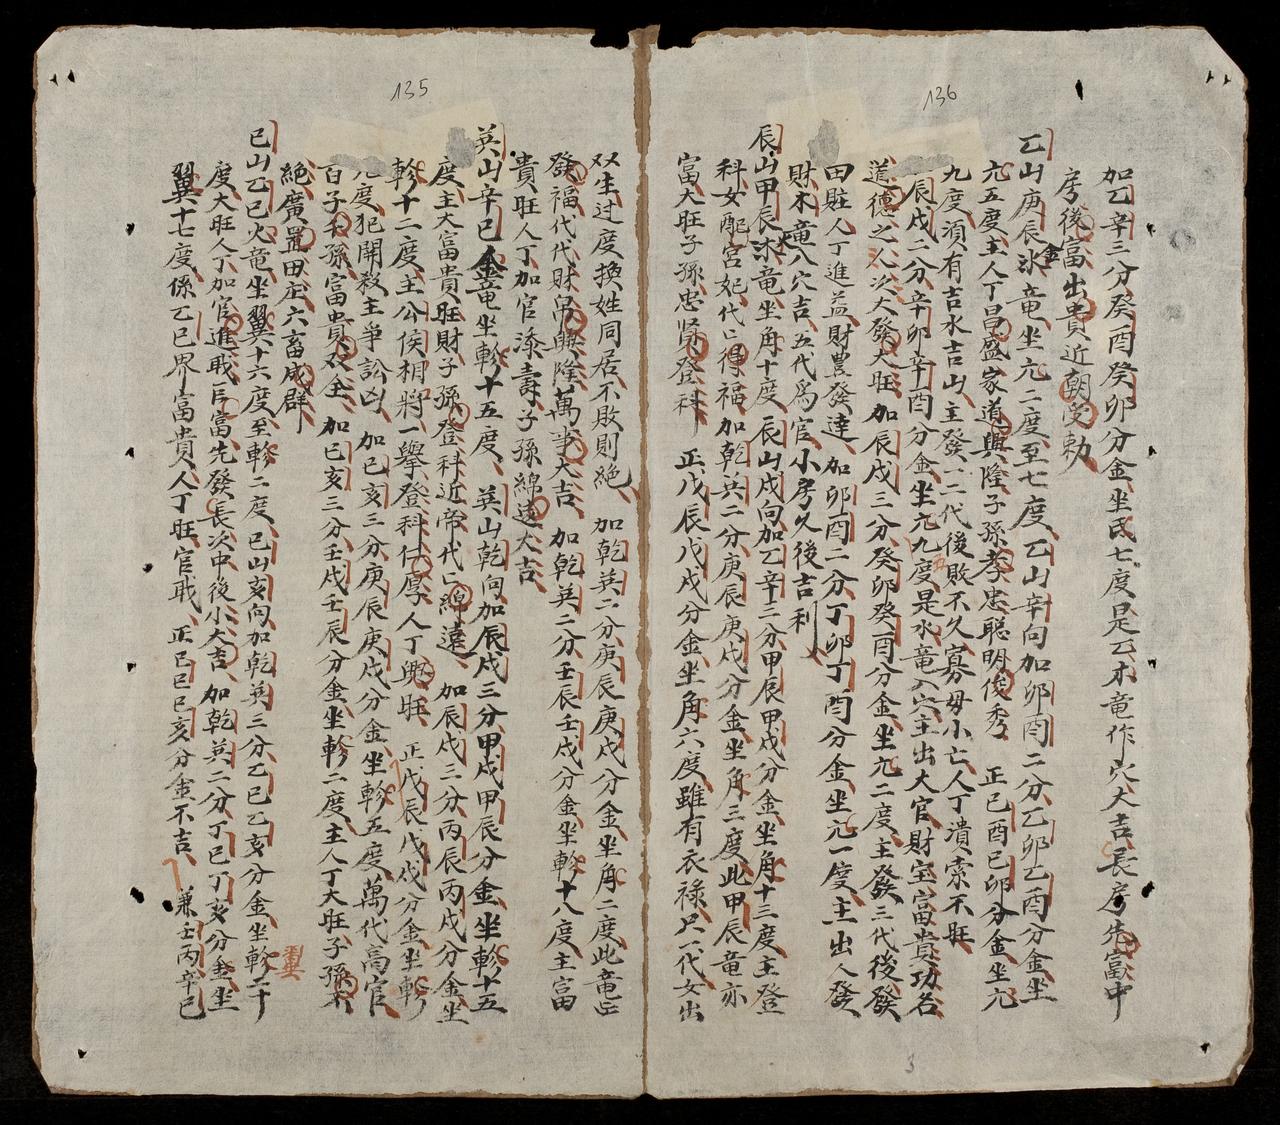 136
加乙辛三分癸酉癸卯分金坐氐七度是乙木竜作穴大吉長房先富中
房後富出貴近朝受勅
乙山庚辰金竜坐亢二度至七度乙山辛向加卯酉二分乙卯乙酉分金坐
亢五度主人丁昌盛家道興隆子孫孝忠聡明俊秀 正己酉己卯分金坐亢
九度須有吉水吉山主發一二代後敗不久寡母小亡人丁潰索不旺
辰戌二分辛卯辛酉分金坐亢九度是水竜入穴主出大官財宝富貴功名
道德之人次大發大旺 加辰戌三分癸卯癸酉分金坐亢二度主發三代後發
田庄人丁進益財豊發達 加卯酉二分丁卯丁酉分金坐亢一度主出人發
財木竜入穴吉五代為官小房久後吉利
辰山甲辰水竜坐角十度 辰山戌向加乙辛三分甲辰甲戌分金坐角十三度主登
科女配宮妃代〻得福 加乾巽二分庚辰庚戌分金坐角三度此甲辰竜亦
富大旺子孫忠賢登科 正戊辰戊戌分金坐角六度雖有衣祿只一代女出
135
双生过度換姓同居不敗則絶 加乾巽二分庚辰庚戌分金坐角二度此竜
發福代代財帛興隆萬事大吉 加乾巽二分壬辰壬戌分金坐軫十八度主富
貴旺人丁加官添壽子孫綿遠大吉
巽山辛巳金竜坐軫十五度 巽山乾向加辰戌三分甲戌甲辰分金坐軫十五
度主大富貴旺財子孫登科近帝代〻綿遠 加辰戌三分丙辰丙戌分金坐
軫十二度主公侯相將一舉登科仁厚人丁興旺 正戊辰戊戌分金坐軫
九度犯開殺主爭訟凶 加巳亥三分庚辰庚戌分金坐軫五度萬代高官
百子千孫富貴双全 加巳亥三分壬戌壬辰分金坐軫二度主人丁大旺子孫不
絶廣置田庄六畜成群
巳山乙巳火竜坐翼十六度至軫二度巳山亥向加乾巽三分乙巳乙亥分金坐軫二十
翼
度大旺人丁加官進職巨富先發長次中後小大吉 加乾巽二分丁巳丁亥分金坐
翼十七度係乙巳界富貴人丁旺官職 正己巳己亥分金不吉 兼壬丙辛巳
3